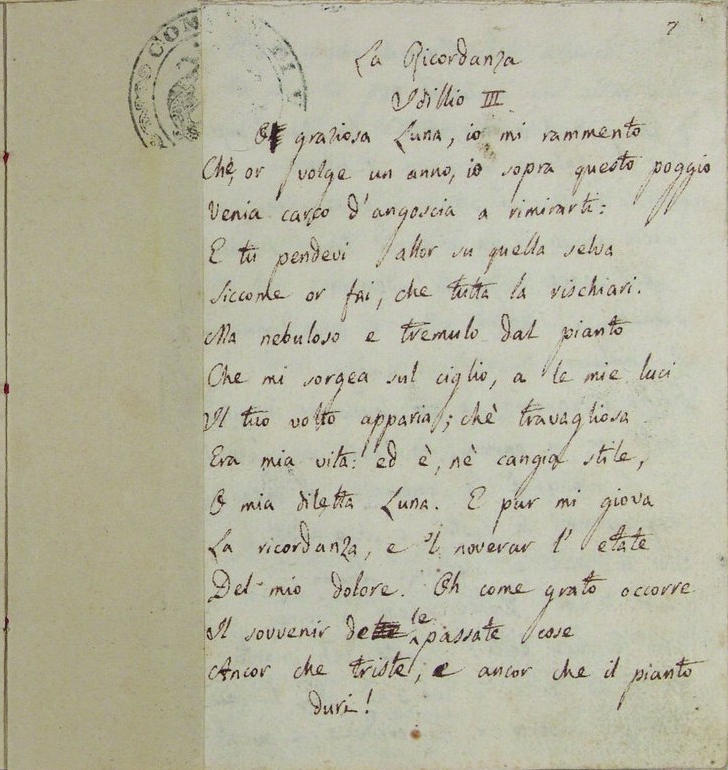 7
La Ricordanza
Idillio III
O graziosa Luna, io mi rammento
Chè, or volge un anno, io sopra questo poggio
Venia carco d'angoscia a rimirarti:
E tu pendevi allor su quella selva
Siccome or fai, che tutta la rischiari.
Ma nebuloso e tremulo dal pianto
Che mi sorgea sul ciglio, a le mie luci
Il tuo volto apparia; chè travagliosa
Era mia vita: ed è, nè cangia stile,
O mia diletta Luna. E pur mi giova
La ricordanza, e 'l noverar l'etate
Del mio dolore. Oh come grato occorre
Il sovvenir de le passate cose
Ancor che triste, e ancor che il pianto
duri!